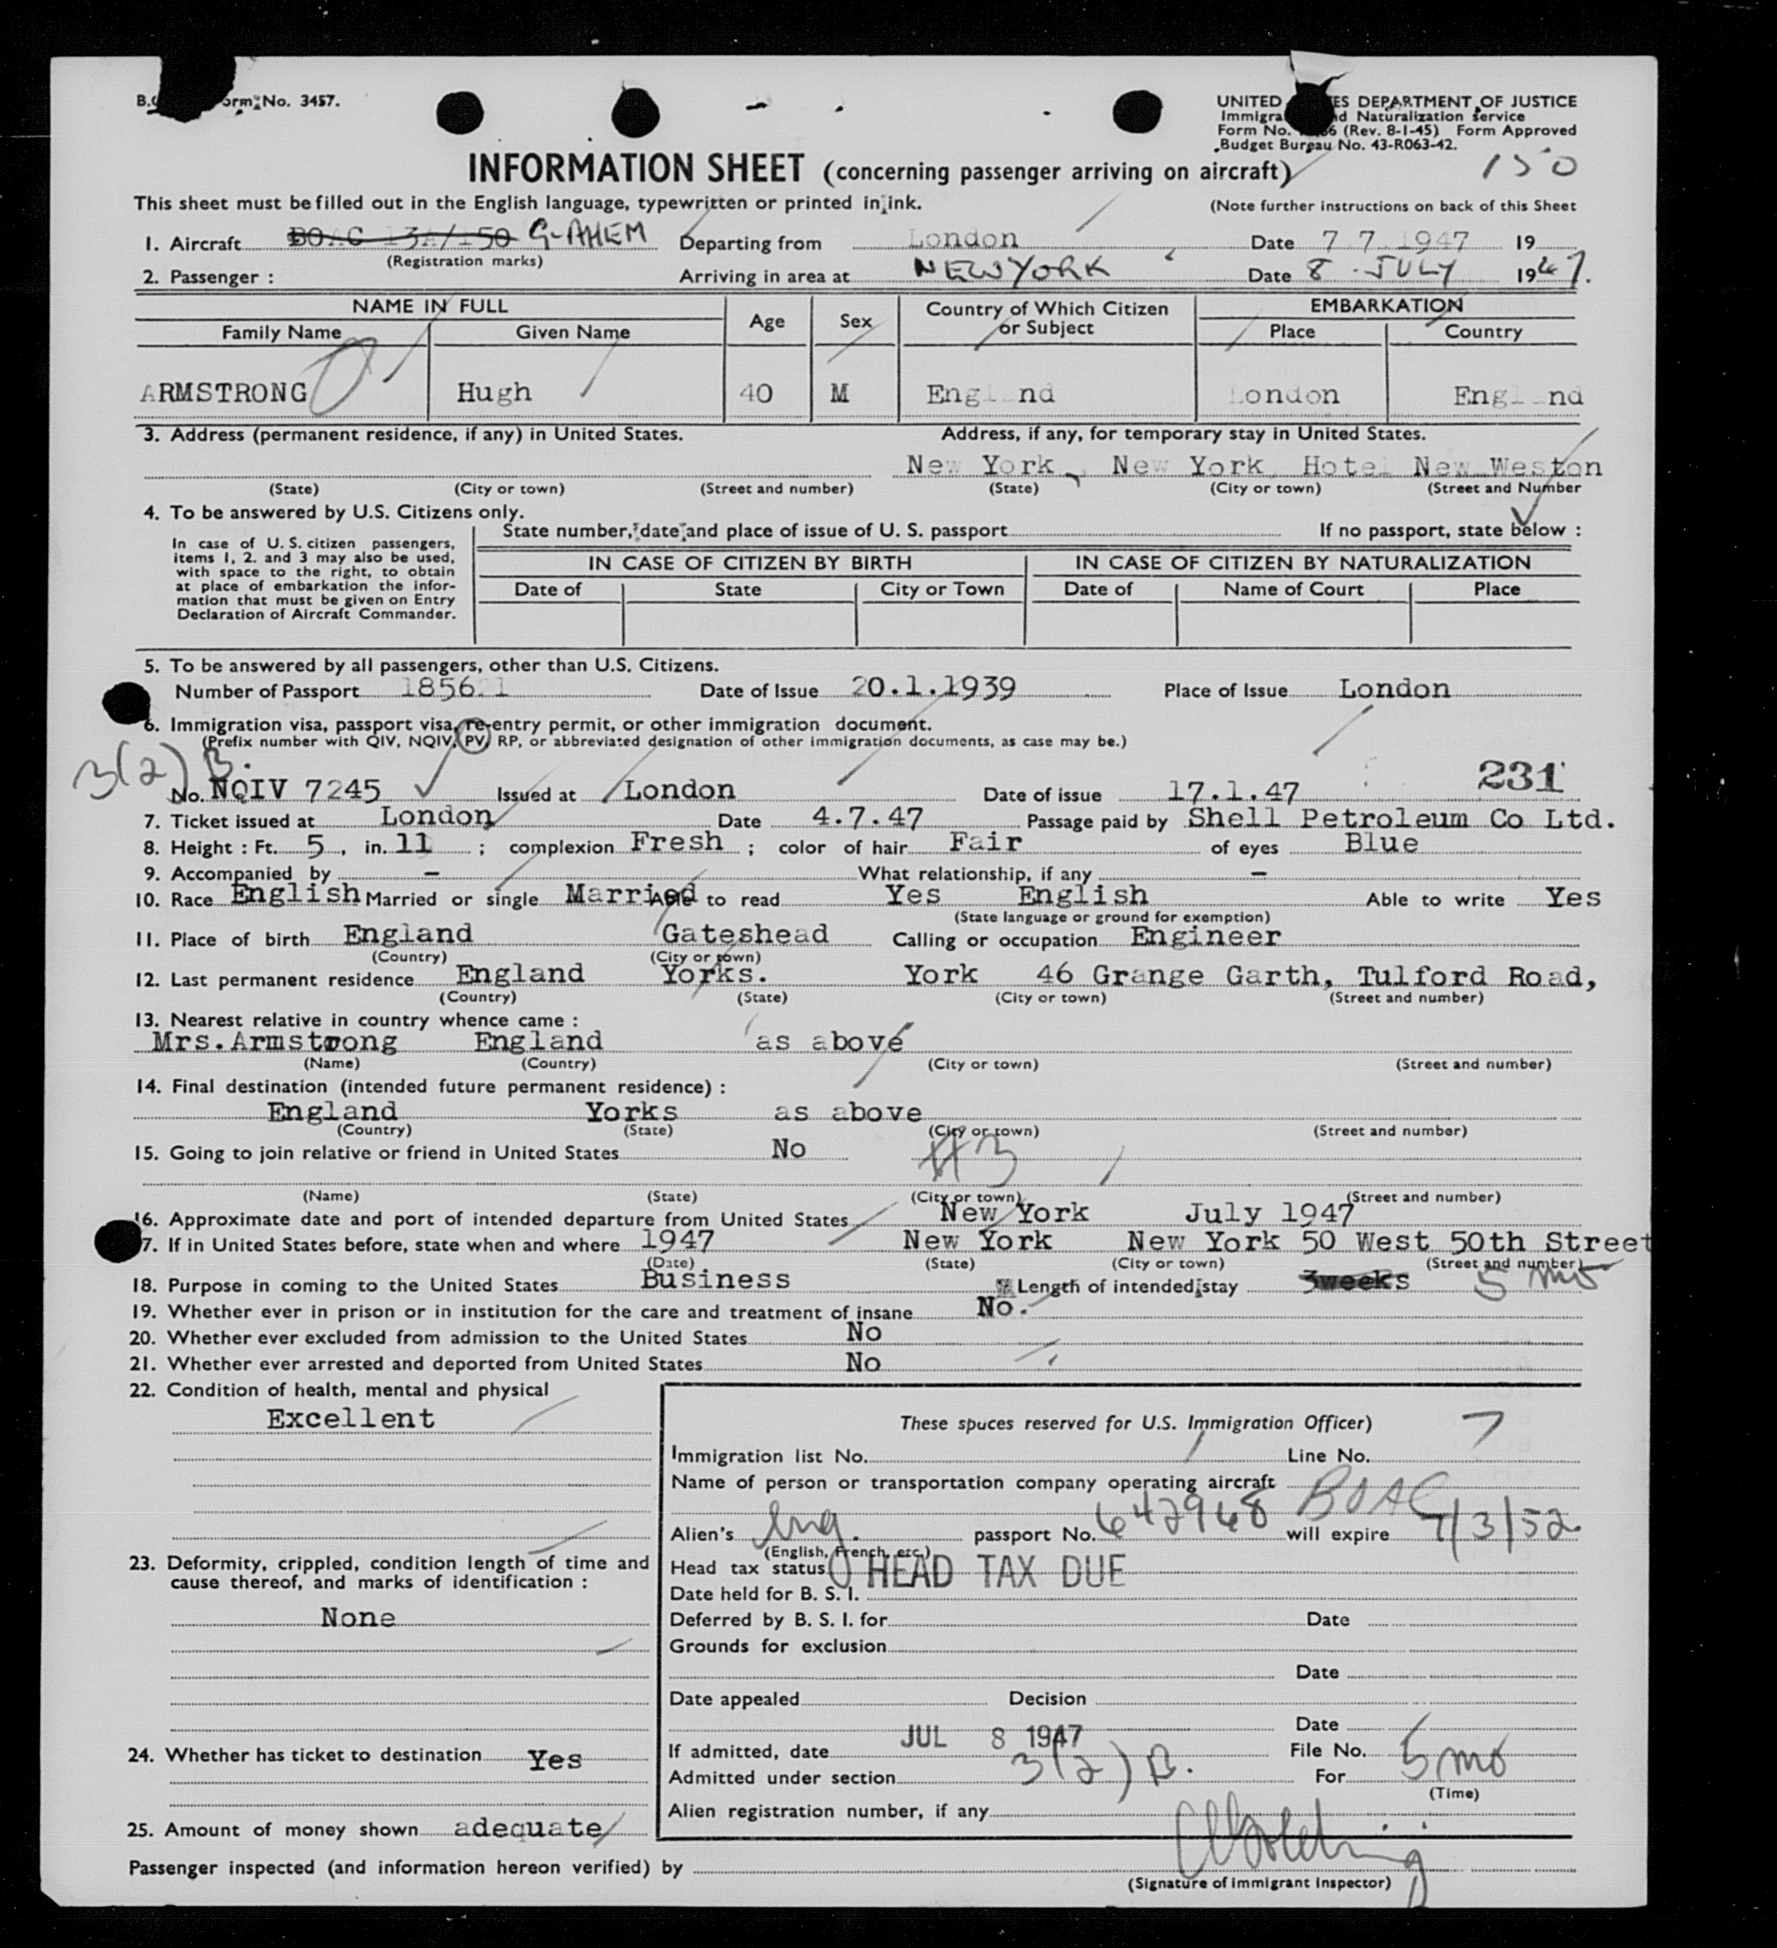 Form No. 3457.
UNITED STATES DEPARTMENT OF JUSTICE
Immigra nd Naturalization Service
Form No. 6 (Rev. 8-1-45) Form Approved
Budget Bureau No. 43-R063-42.
150
INFORMATION SHEET (concerning passenger arriving on aircraft)
This sheet must be filled out in the English language, typewritten or printed in ink. (Note further instructions on back of this Sheet
1. Aircraft BOAC 13A/150 G-AHEM Departing from London Date 7 7 1947 19
(Registration marks)
2. Passenger : Arriving in area at NEW YORK Date 8 JULY 1947.
NAME IN FULL Age Sex Country of Which Citizen or Subject EMBARKATION
Family Name Given Name Place Country
ARMSTRONG Hugh 40 M Eng nd London Eng nd
3. Address (permanent residence, if any) in United States. Address, if any, for temporary stay in United States.
New York, New York Hotel New Weston
(State) (City or town) (Street and number) (State) (City or town) (Street and Number
4. To be answered by U.S. Citizens only.
State number, date and place of issue of U. S. passport If no passport, state below :
In case of U. S. citizen passengers,
items 1, 2. and 3 may also be used,
with space to the right, to obtain
at place of embarkation the infor-
mation that must be given on Entry
Declaration of Aircraft Commander.
IN CASE OF CITIZEN BY BIRTH IN CASE OF CITIZEN BY NATURALIZATION
Date of State City or Town Date of Name of Court Place
5. To be answered by all passengers, other than U.S. Citizens.
Number of Passport Date of Issue 20.1.1939 Place of Issue London
6. Immigration visa, passport visa, re-entry permit, or other immigration document.
(Prefix number with QIV, NQIV, PV, RP, or abbreviated designation of other immigration documents, as case may be.)
3(2) B. 231
No. NQIV 7245 Issued at London Date of issue 17.1.47
7. Ticket issued at London Date 4.7.47 Passage paid by Shell Petroleum Co Ltd.
8. Height : Ft. 5, in. 11 ; complexion Fresh ; color of hair Fair of eyes Blue
9. Accompanied by - What relationship, if any -
10. Race English Married or single Married Able to read Yes English Able to write Yes
(State language or ground for exemption)
11. Place of birth England Gateshead Calling or occupation Engineer
(Country) (City or town)
12. Last permanent residence England Yorks. York 46 Grange Garth, Tulford Road,
(Country) (State) (City or town) (Street and number)
13. Nearest relative in country whence came :
Mrs. Armstrong England as above
(Name) (Country) (City or town) (Street and number)
14. Final destination (intended future permanent residence) :
England Yorks as above
(Country) (State) (City or town) (Street and number)
15. Going to join relative or friend in United States No #3
(Name) (State) (City or town) (Street and number)
16. Approximate date and port of intended departure from United States New York July 1947
17. If in United States before, state when and where 1947 New York New York 50 West 50th Street
(Date) (State) (City or town) (Street and number)
18. Purpose in coming to the United States Business Length of intended stay 3weeks 5 mos
19. Whether ever in prison or in institution for the care and treatment of insane No.
20. Whether ever excluded from admission to the United States No
21. Whether ever arrested and deported from United States No
22. Condition of health, mental and physical
Excellent
These spaces reserved for U.S. Immigration Officer)
Immigration list No. 1 Line No. 7
Name of person or transportation company operating aircraft BOAC
Alien's Eng. passport No. 642968 will expire 7/3/52
(English, French, etc.)
23. Deformity, crippled, condition length of time and
cause thereof, and marks of identification :
None
Head tax status HEAD TAX DUE
Date held for B. S. I.
Deferred by B. S. I. for Date
Grounds for exclusion
Date
Date appealed Decision
Date
24. Whether has ticket to destination Yes
If admitted, date JUL 8 1947 File No.
Admitted under section 3(2) B. For 5 mo
(Time)
Alien registration number, if any
25. Amount of money shown adequate
Passenger inspected (and information hereon verified) by
(Signature of Immigrant Inspector)